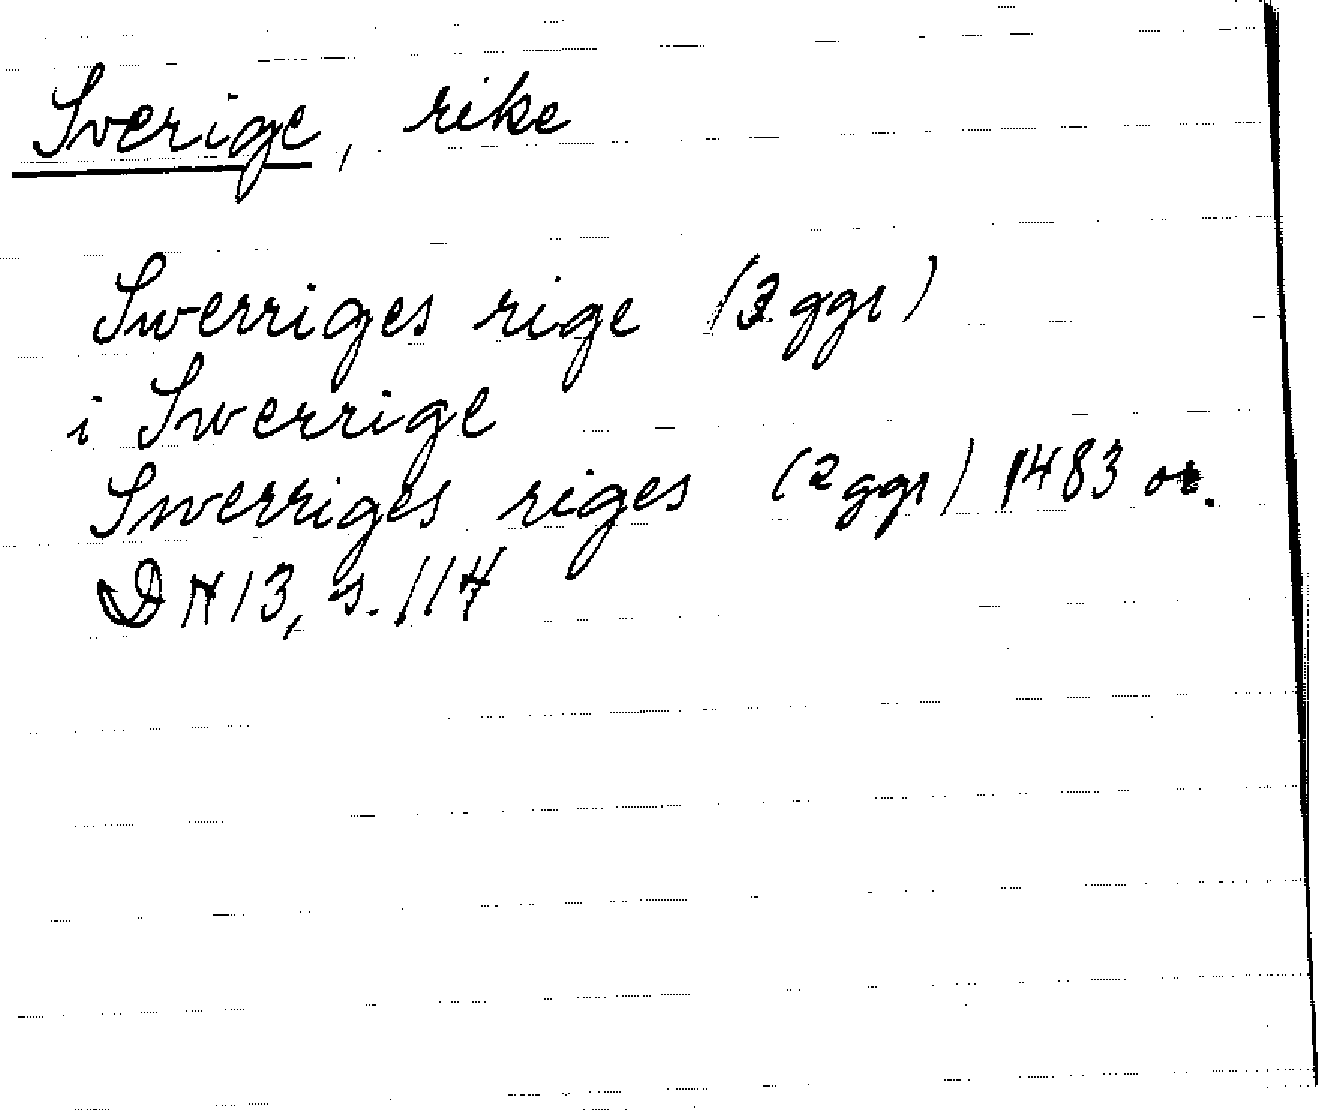 Sverige, rike
Swerriges rige (3 ggr)
i Swerrige
Swerriges riges (2 ggr) 1483 or.
DN 13, s. 114